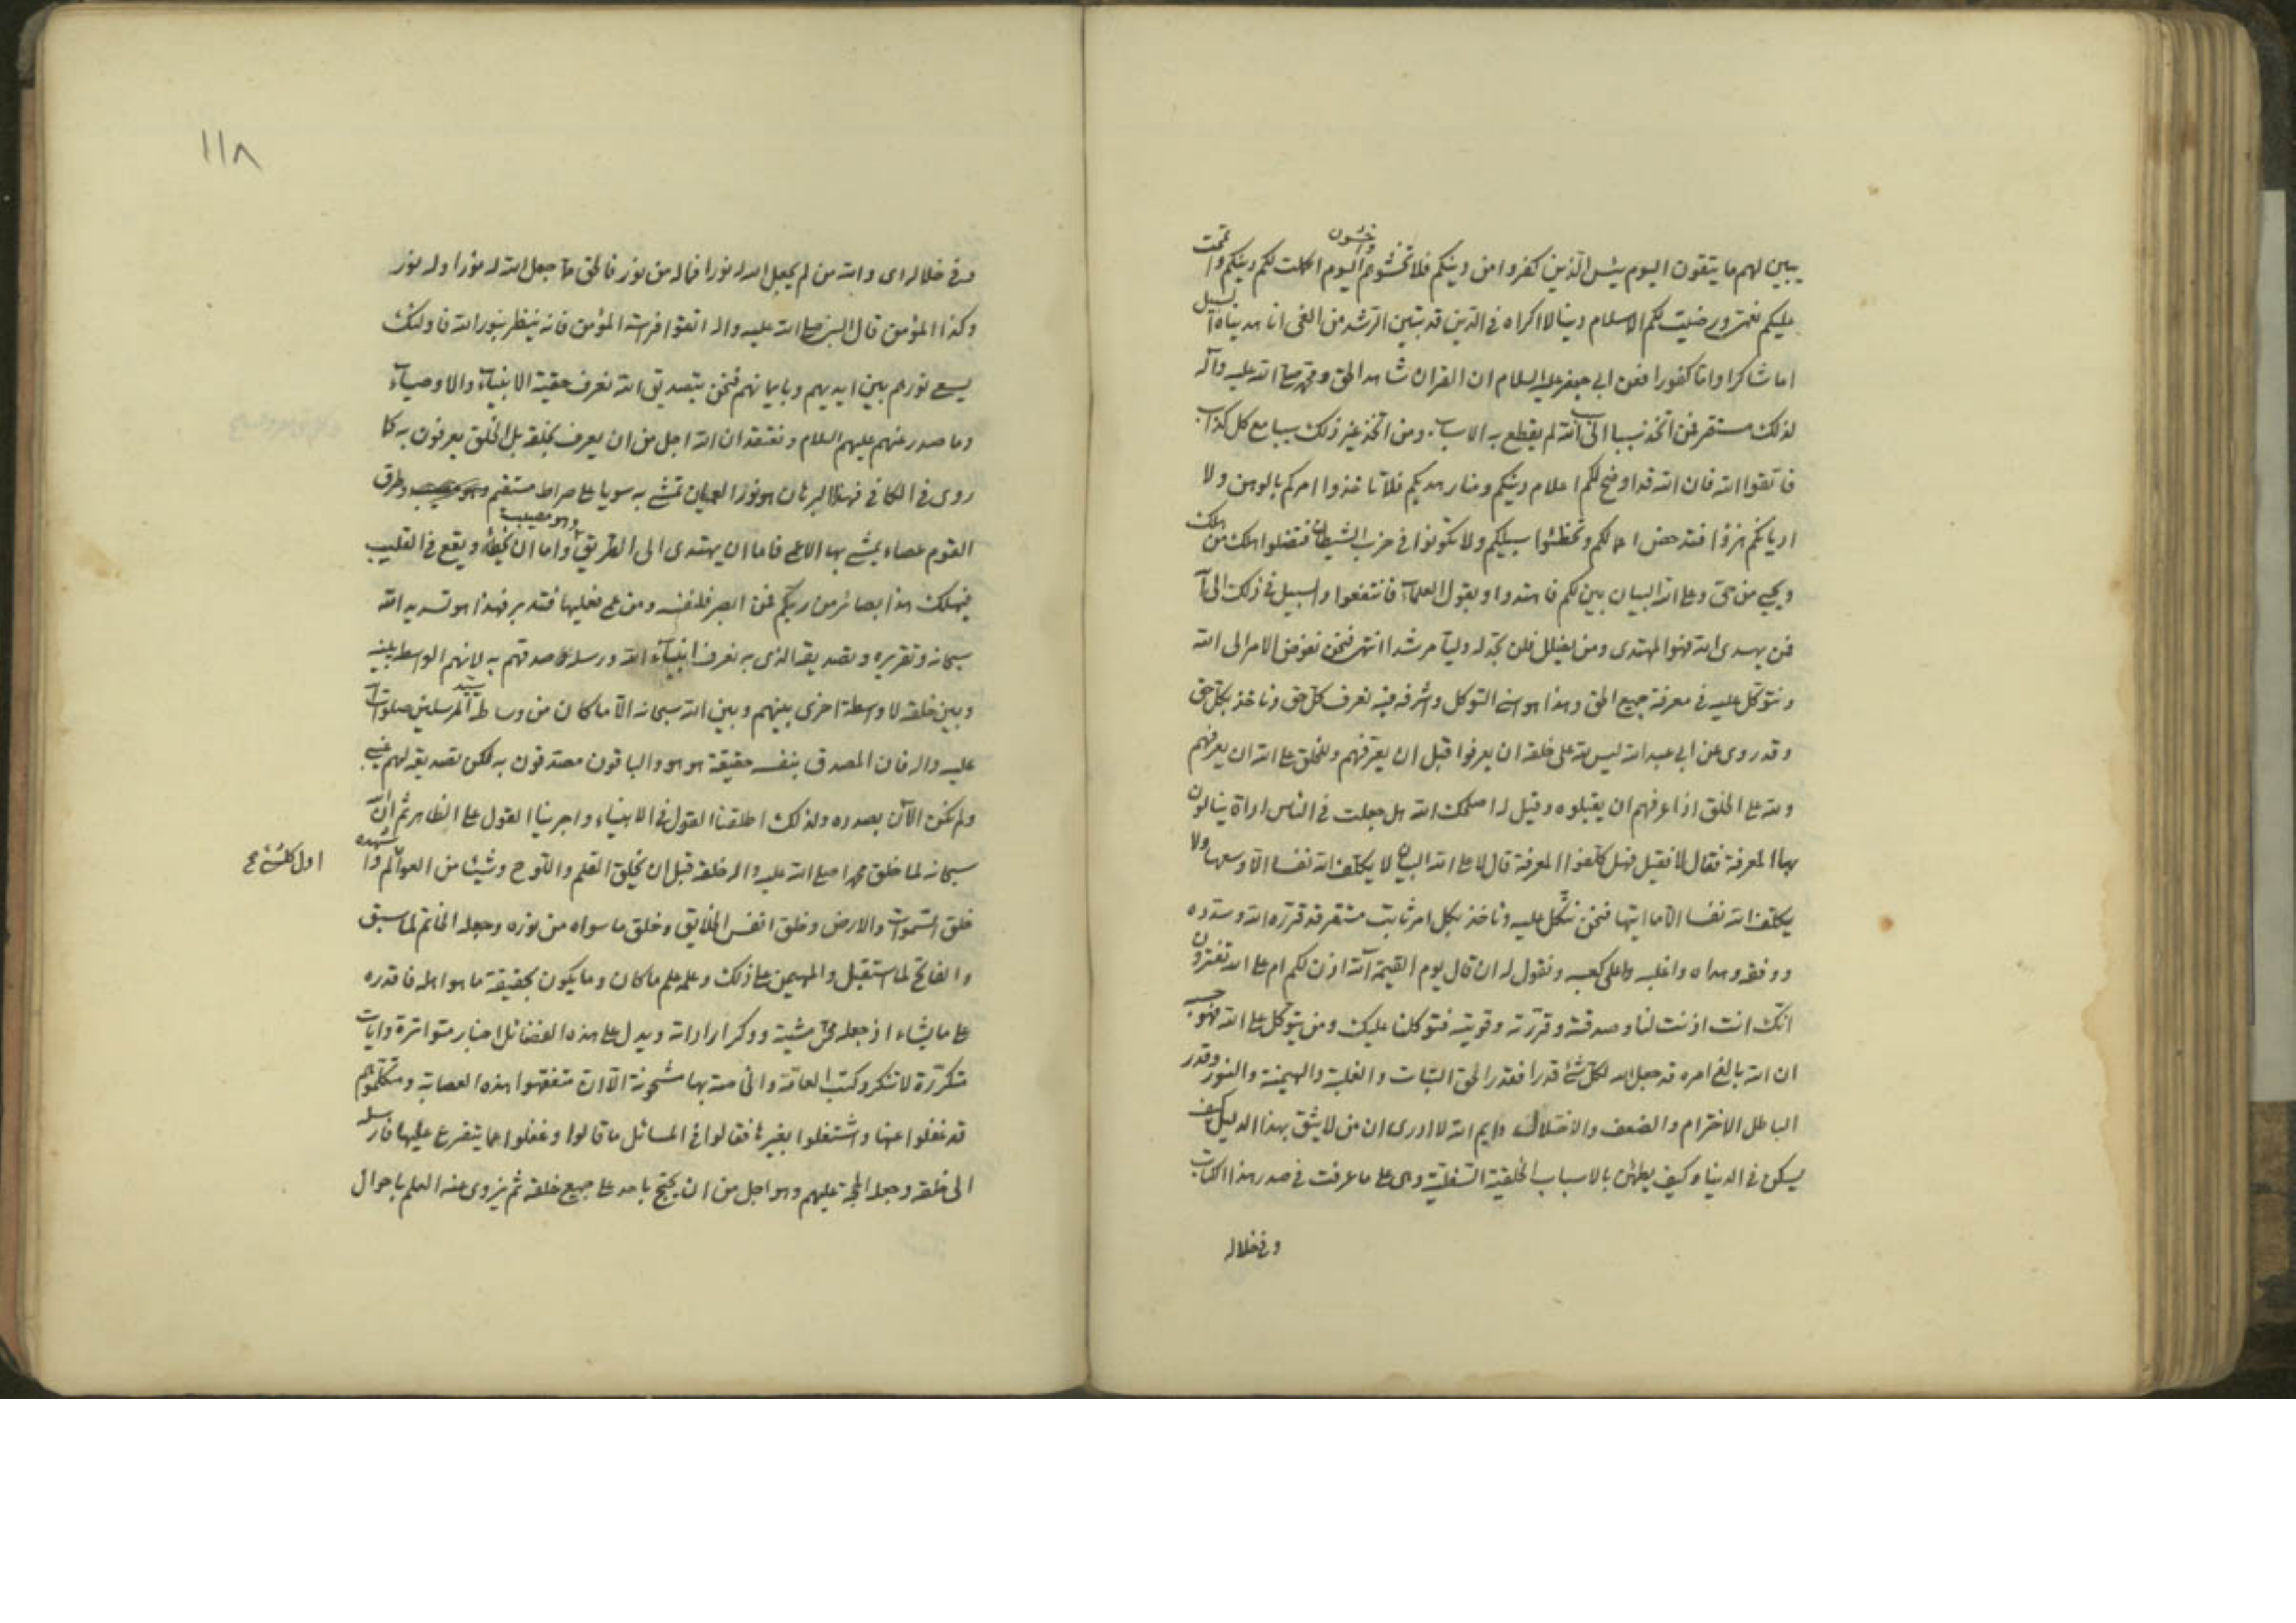 يبين لهم ما يتقون اليوم يئس الذين كفروا من دينكم فلا تخشوهم واخشون اليوم اكملت لكم دينكم واتممت
عليكم نعمتي ورضيت لكم الاسلام دينا لا اكراه في الدين قد تبين الرشد من الغي انا هديناه السبيل
اما شاكرا واما كفورا فعن ابي جعفر عليه السلام ان القران شاهد الحق ومحمد صلى الله عليه وآله
لذلك مستقر فمن اتخذ سببا الى الله لم يقطع به الاسباب ومن اتخذ غير ذلك سببا مع كل كذاب
فاتقوا الله فان الله قد اوضح لكم اعلام دينكم ومنار هديكم فلا تاخذوا امركم بالوهن ولا
اديانكم هزؤا فتدحض اعمالكم وتخطئوا سبيلكم ولا تكونوا في حزب الشيطان فتضلوا يهلك من هلك
ويحيي من حي وعلى الله البيان بين لكم فاهتدوا وبقول العلماء فانتفعوا والسبيل في ذلك الى الله
فمن يهدى الله فهو المهتدى ومن يضلل فلن تجد له وليا مرشدا انتهى فنحن نفوض الامر الى الله
ونتوكل عليه في معرفة جميع الحق وهذا هو اسنى التوكل واشرفه فبه نعرف كل حق وناخذ بكل حق
وقد روى عن ابي عبد الله ليس لله على خلقه ان يعرفوا قبل ان يعرفهم وللخلق على الله ان يعرفهم
ولله على الخلق اذا عرفهم ان يقبلوه وقيل له اصلحك الله هل جعلت في الناس اداة ينالون
بها المعرفة فقال لا فقيل فهل كلفوا المعرفة قال لا على الله البيان لا يكلف الله نفسا الا وسعها ولا
يكلف الله نفسا الا ما اتيها فنحن نتكل عليه وناخذ بكل امر ثابت مستقر قد قرره الله وسدده
ووفقه وهداه واغلبه واعلى كعبه ونقول له ان قال يوم القيمة آلله اذن لكم ام على الله تفترون
انك انت اذنت لنا وصدقته وقررته وقويته فتوكلنا عليك ومن يتوكل على الله فهو حسبه
ان الله بالغ امره قد جعل الله لكل شئ قدرا فقدر الحق الثبات والغلبة والهيمنة والنور وقدر
الباطل الاخترام والضعف والاختلاف وايم الله لا ادرى ان من لا يثق بهذا الدليل كيف
يسكن في الدنيا وكيف يطمئن بالاسباب الخلقية السفلية وهى على ما عرفت في صدر هذا الكتاب
وفي خلاله
١١٨
وفي خلاله اى والله من لم يجعل الله له نورا فماله من نور فالحق ما جعل الله له نورا وله نور
وكذا المؤمن قال النبي صلى الله عليه واله اتقوا فراسة المؤمن فانه ينظر بنور الله فاولئك
يسعى نورهم بين ايديهم وبايمانهم فنحن بتصديق الله نعرف حقية الانبياء والاوصياء
وما صدر عنهم عليهم السلام ونعتقد ان الله اجل من ان يعرف بخلقه بل الخلق يعرفون به كما
روى في الكافي فهذا البرهان هو نور العيان تمشى به سويا على صراط مستقيم وطرق
القوم عصاء يمشى بها الاعمى فاما ان يهتدى الى الطريق وهو مصيب واما ان يخطئه ويقع في القليب
فيهلك هذا بصائر من ربكم فمن ابصر فلنفسه ومن عمى فعليها فتدبر فهذا هو تسديد الله
سبحانه وتقريره وتصديقه الذى به نعرف انبياء الله ورسله صدقهم به لانهم الوسط بينه
وبين خلقه لا واسطة اخرى بينهم وبين الله سبحانه الا ما كان من وساطة سيد المرسلين صلوات الله
عليه واله فان المصدق بنفسه حقيقة هو هو والباقون مصدقون به لكن تصديقه لهم غيبي
ولم نكن الآن بصدده ولذلك اطلقنا القول في الانبياء واجرينا القول على الظاهر ثم ان الله
سبحانه لما خلق محمدا صلى الله عليه واله خلقه قبل ان يخلق القلم واللوح وشيئا من العوالم واشهده
اول كلشئ
خلق السموات والارض وخلق انفس الخلايق وخلق ما سواه من نوره وجعله الخاتم لما سبق
والفاتح لما استقبل والمهيمن على ذلك وعلمه علم ما كان وما يكون بحقيقة ما هو اهله فاقدره
على ما يشاء اذ جعله محل مشيته ووكر اراداته ويدل على هذه الفضائل اخبار متواترة وايات
متكررة لا تنكر وكتب العامة والخاصة بها مشحونة الا ان متفقهوا هذه العصابة ومتكلموهم
قد غفلوا عنها واشتغلوا بغيرها فقالوا في المسائل ما قالوا وغفلوا عما يتفرع عليها فارسله
الى خلقه وجعله الحجة عليهم وهو اجل من ان يحتج باحد على جميع خلقه ثم يزوى عنه العلم باحوال